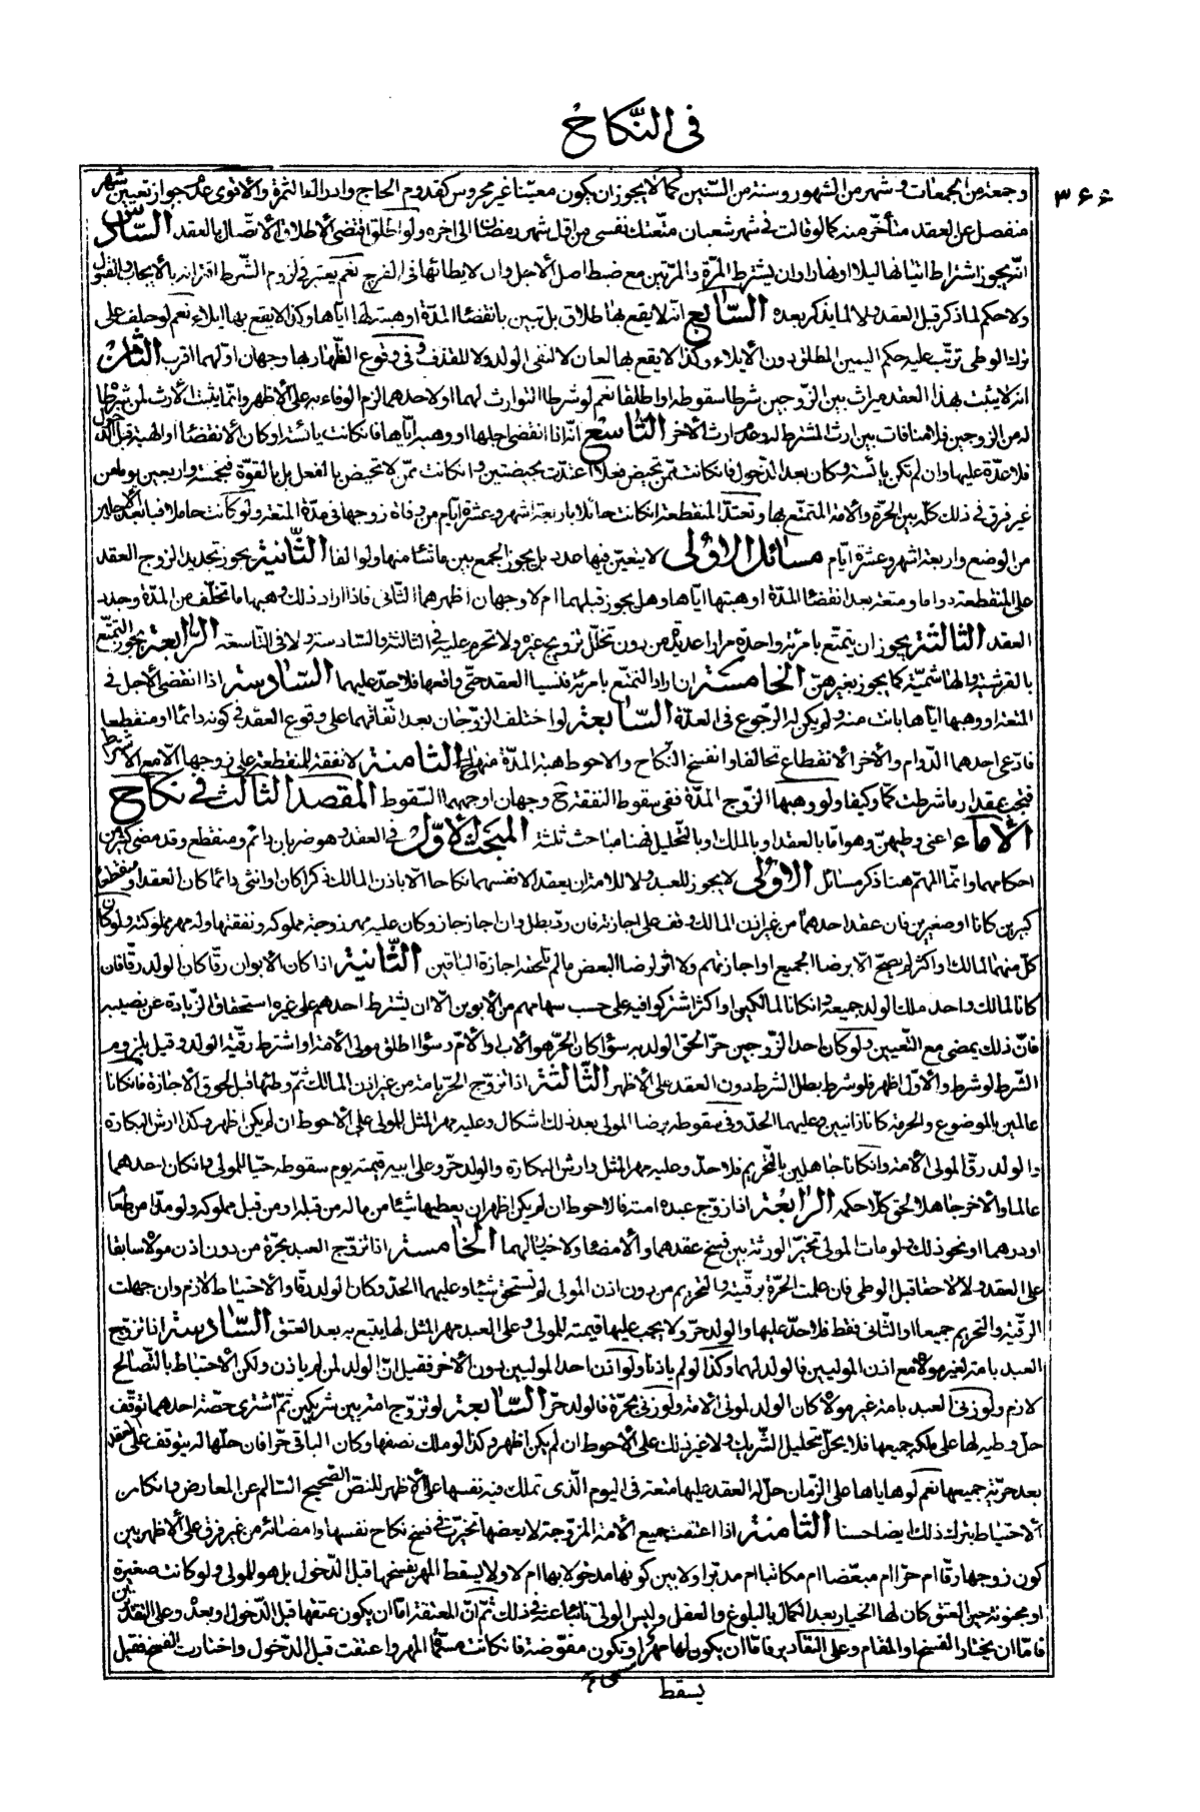 في النكاح
۳۶۶
وجمعة من الجمعات وشهر من الشهور وسنة من السّنين كما لا يجوز ان يكون معيّنا غير محروس كقدوم الحاج وادراك الثمرة والاقوى عدم جواز تعيين شهر
منفصل عن العقد متأخّر منه كما لو قالت في شهر شعبان متّعتك نفسي من اوّل شهر رمضان الى اخره ولو اطلق اقتضى الاطلاق الاتّصال بالعقد السّادس
انّه يجوز اشتراط اتيانها ليلا او نهارا وان يشترط المرّة والمرّتين مع ضبط اصل الاجل وان لا يطائها في الفرج نعم يعتبر في لزوم الشّرط اقترانه بالايجاب والقبول
ولا حكم لما ذكر قبل العقد ولا لما يذكر بعده السّابع انّه لا يقع بها طلاق بل تبين بانقضاء المدّة او هبته لها ايّاها وكذا لا يقع بها ايلاء نعم لو حلف على
ترك الوطي ترتّب عليه حكم اليمين المطلق دون الايلاء وكذا لا يقع بها لعان لا لنفى الولد ولا للقذف وفي وقوع الظّهار بها وجهان اوّلهما اقرب الثّامن
انه لا يثبت بهذا العقد ميراث بين الزّوجين شرطا سقوطه او اطلقا نعم لو شرطا التوارث لهما او لاحدهما لزم الوفاء به على الاظهر وانّما يثبت الارث لمن شرطا
له من الزوجين فلا منافات بين ارث المشترط له وعدم ارث الاخر التّاسع انّه اذا انقضى اجلها او وهبها ايّاها فان كانت يائسة او كان الانقضاء او الهبة قبل الدّخول
فلا عدّة عليها وان لم تكن يائسة وكان بعد الدّخول فان كانت ممّن تحيض فعلا اعتدّت بحيضتين وان كانت ممّن لا تحيض بالفعل بل بالقوّة فبخمسة واربعين يوما من
غير فرق في ذلك كلّه بين الحرّة والامة المتمتّع بها وتعتدّ المنقطعة ان كانت حائلا باربعة اشهر وعشرة ايّام من وفاة زوجها في مدّة المتعة ولو كانت حاملا فبابعد الاجلين
من الوضع واربعة اشهر وعشرة ايّام مسائل الاولى لا يتعيّن فيها عدد بل يجوز الجمع بين ما شئ منها ولو الفا الثّانية يجوز تجديد الزوج العقد
على المنقطعة دواما ومتعة بعد انقضاء المدّة او هبتها ايّاها وهل يجوز قبلهما ام لا وجهان اظهرهما الثّاني فاذا اراد ذلك وهبها ما تخلّف من المدّة وجدد
العقد الثالثة يجوز ان يتمتّع بامرئة واحدة مرارا عديدة من دون تخلّل تزويج غيره ولا تحرم عليه في الثالثة والسّادسة ولا في التّاسعة الرّابعة يجوز التمتّع
بالقرشيّة والهاشميّة كما يجوز بغيرهنّ الخامسة ان اراد التمتّع بامرئة فنسيا العقد حتّى واقعها فلا حدّ عليهما السّادسة اذا انقضى الاجل في
المتعة او وهبها ايّاها بانت منه ولم يكن له الرّجوع في العدّة السّابعة لو اختلف الزّوجان بعد اتّفاقهما على وقوع العقد في كونه دائما او منقطعا
فادّعى احدهما الدّوام والاخر الانقطاع تحالفا وانفسخ النّكاح والاحوط هبة المدّة منه الثّامنة لا نفقة للمنقطعة على زوجها الّا مع الاشتراط
فتجب بمقدار ما شرطت كمّا وكيفا ولو وهبها الزّوج المدّة ففي سقوط النفقة ح وجهان اوجههما السّقوط المقصد الثّالث في نكاح
الاماء اعني وطيهنّ وهو امّا بالعقد او بالملك او بالتّحليل فهنا مباحث ثلثة المبحث الاوّل في العقد وهو ضربان دائم ومنقطع وقد مضى كثير من
احكامهما وانّما المهمّ هنا ذكر مسائل الاولى لا يجوز للعبد ولا للامة ان يعقد لانفسهما نكاحا الّا باذن المالك ذكرا كان او انثى دائما كان العقد او منقطعا
كبيرين كانا او صغيرين فان عقد احدهما من غير اذن المالك وقف على اجازته فان ردّ بطل وان اجاز جاز وكان عليه مهر زوجة مملوكه ونفقتها وله مهر مملوكته ولو كان
كلّ منهما لمالك واكثر لم يصحّ الّا برضا الجميع او اجازتهم ولا اثر لرضا البعض ما لم تلحقه اجازة الباقين الثّانية اذا كان الابوان رقّا كان الولد رقّا فان
كانا لمالك واحد ملك الولد جميعه وان كانا لمالكين او اكثر اشتركوا فيه على حسب سهامهم من الابوين الّا ان يشترط احدهم على غيره استحقاق الزّيادة عن نصيبه
فانّ ذلك يمضى مع التّعيين ولو كان احد الزّوجين حرّا لحق الولد به سواء كان الحرّ هو الاب او الامّ وسواء اطلق مولى الامة او اشترط رقّيّة الولد وقيل بلزوم
الشّرط لو شرط والاوّل اظهر فلو شرط بطل الشرط دون العقد على الاظهر الثّالثة اذا تزوّج الحرّ بامة من غير اذن المالك ثمّ وطئها قبل لحوق الاجازة فان كانا
عالمين بالموضوع والحرمة كانا زانيين وعليهما الحدّ وفي سقوطه برضا المولى بعد ذلك اشكال وعليه مهر المثل للمولى على الاحوط ان لم يكن اظهر وكذا ارش البكارة
والولد رقّ لمولى الامة وان كانا جاهلين بالتّحريم فلا حدّ وعليه مهر المثل وارش البكارة والولد حرّ وعلى ابيه قيمته يوم سقوطه حيّا للمولى وان كان احدهما
عالما والاخر جاهلا لحق كلّا حكمه الرّابعة اذا زوّج عبده امته فالاحوط ان لم يكن اظهر ان يعطيها شيئا من ماله من قبله او من قبل مملوكه ولو مدّا من طعام
او درهما او نحو ذلك ولو مات المولى تخيّر الورثة بين فسخ عقدهما والامضاء ولا خيار لهما الخامسة اذا تزوّج العبد بحرّة من دون اذن مولاه سابقا
على العقد ولا لاحقا قبل الوطي فان علمت الحرّة برقّيته والتحريم من دون اذن المولى لم تستحق شيئا وعليهما الحدّ وكان الولد رقّا والاحتياط لازم وان جهلت
الرقّية والتحريم جميعا او الثّاني فقط فلا حدّ عليها والولد حرّ ولا يجب عليها قيمته للمولى وعلى العبد مهر المثل لها يتبع به بعد العتق السّادسة اذا تزوّج
العبد بامة لغير مولاه مع اذن الموليين فالولد لهما وكذا لو لم ياذنا ولو اذن احد الموليين دون الاخر فقيل انّ الولد لمن لم ياذن ولكن الاحتياط بالتّصالح
لازم ولو زنى العبد بامة غير مولاه كان الولد لمولى الامة ولو زنى بحرّة فالولد حرّ السّابعة لو تزوّج امة بين شريكين ثمّ اشترى حصّة احدهما توقّف
حلّ وطيه لها على ملكه جميعها فلا يحلّ بتحليل الشّريك ولا غير ذلك على الاحوط ان لم يكن اظهر وكذا لو ملك نصفها وكان الباقي حرّا فان حلّها له يتوقّف على العقد
بعد حرّيّة جميعها نعم لو هاياها على الزّمان حلّ له العقد عليها متعة في اليوم الّذي تملك فيه نفسها على الاظهر للنصّ الصّحيح السّالم عن المعارض وان كان
الاحتياط بترك ذلك ايضا حسنا الثّامنة اذا اعتقت جميع الامة المزوّجة لا بعضها تخيّرت في فسخ نكاح نفسها وامضائه من غير فرق على الاظهر بين
كون زوجها رقّا ام حرّا ام مبعّضا ام مكاتبا ام مدبّرا ولا بين كونها مدخولا بها ام لا ولا يسقط المهر بفسخها قبل الدّخول بل هو للمولى ولو كانت صغيرة
او مجنونة حين العتق كان لها الخيار بعد الكمال بالبلوغ والعقل وليس لوليّ نيابة عنه في ذلك ثمّ انّ المعتقة امّا ان يكون عتقها قبل الدّخول او بعده وعلى التّقديرين
فامّا ان يختار الفسخ او المقام وعلى التقادير فامّا ان يكون لها مهر او تكون مفوّضة فان كانت مسمّى المهر واعتقت قبل الدّخول واختارت الفسخ فقيل
يسقط